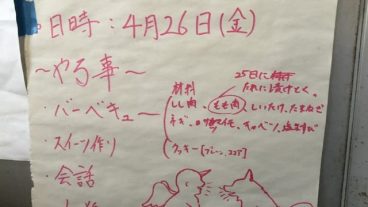 日時：4月26日(金)
〜やる事〜
・バーベキュー
材料
25日に
たれに漬けとく。
しし肉、もも肉、しいたけ、たまねぎ
ネギ、キャベツ、塩むすび
クッキー[プレーン、ココア]
・スイーツ作り
・会話